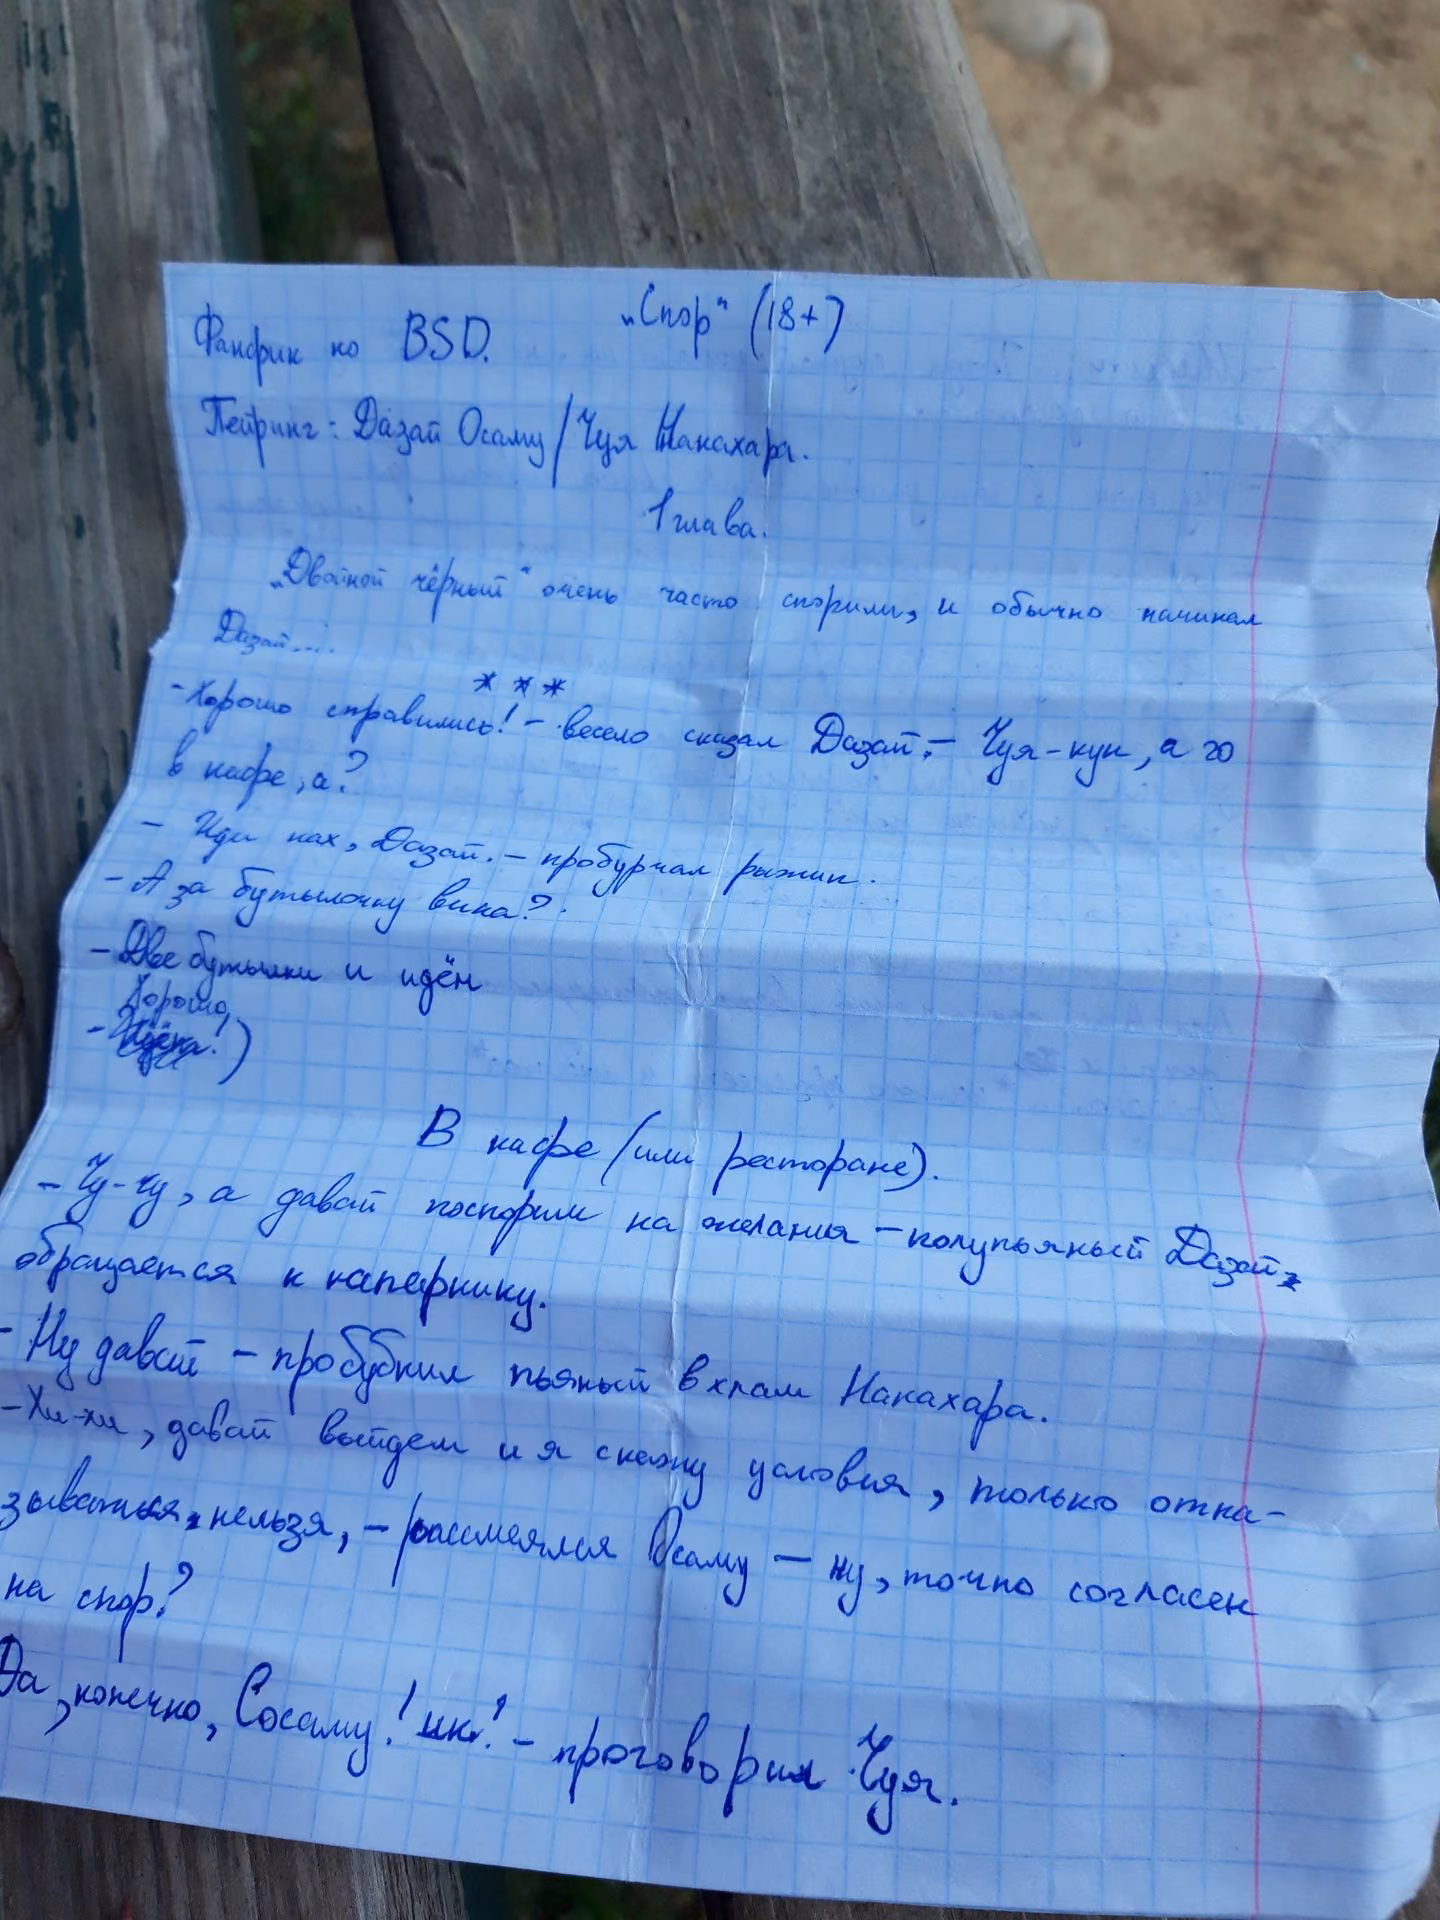 „Спор“ (18+)
Фанфик по BSD.
Пейринг: Дазай Осаму/Чуя Накахара.
1 глава.
„Двойной чёрный“ очень часто спорили, и обычно начинал
Дазай....
***
-Хорошо справились! - весело сказал Дазай. - Чуя-кун, а го
в кафе, а?
- Иди нах, Дазай. - пробурчал рыжик.
- А за бутылочку вина?
- Две бутылки и идём
Хорошо,
- Идём!)
В кафе (или ресторане).
- Чу-чу, а давай поспорим на желания - полупьяный Дазай
обращается к напарнику.
- Ну давай - пробубнил пьяный в хлам Накахара.
- Хи-хи, давай выйдем и я скажу условия, только отка-
зываться нельзя, - рассмеялся Осаму - ну, точно согласен
на спор?
Да, конечно, Сосаму! ик! - проговорил Чуя.